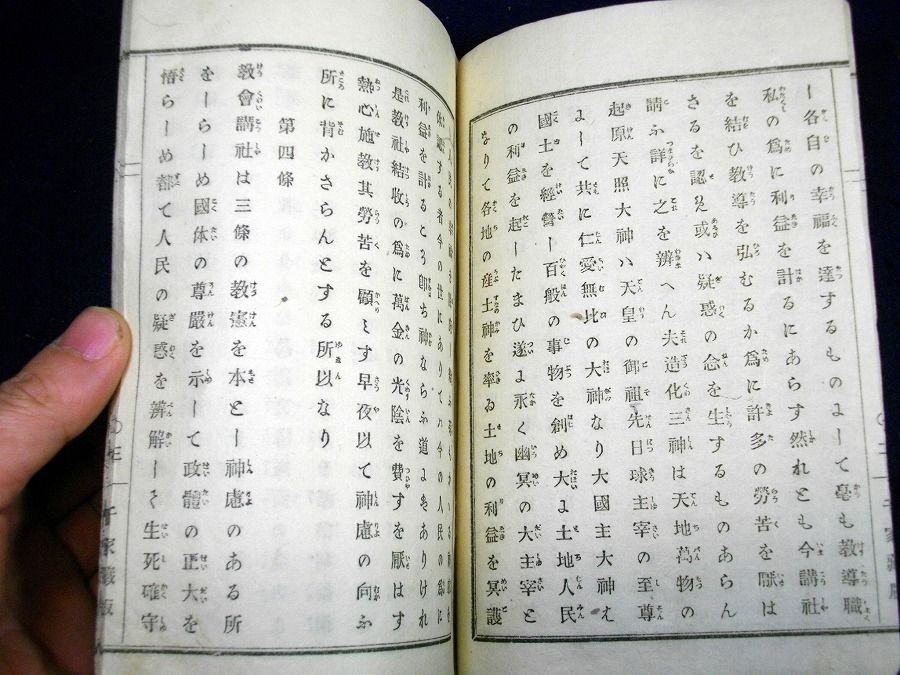 ー各自の幸福を達するものよーて毫も教導職
私の爲に利益を計るにあらす然れとも今講社
を結ひ教導を弘むるか爲に許多の勞苦を厭は
さるを認え或ハ疑惑の念を生するものあらん
請ふ詳に之を辨へん夫造化三神は天地萬物の
起原天照大神ハ天皇の御祖先日球主宰の至尊
よーて共に仁愛無比の大神なり大國主大神え
國土を經營ー百般の事物を創め大よ土地人民
の利益を起ーたまひ遂よ永く幽冥の大主宰と
なりて各地の産土神を率ゐ土地の利益を冥護
する者今の世にありてハ今の人民の爲に
利益を計るところ即ち神ならふ道よをありけれ
是教社結收の爲に萬金の光陰を費すを厭はす
熱心施教其勞苦を顧ミす早夜以て神慮の向ふ
所に背かさらんとする所以なり
第四條
教會講社は三條の教憲を本とー神慮のある所
をーらーめ國体の尊嚴を示ーて政體の正大を
悟らーめ都て人民の疑惑を辨解ーく生死確守
千家藏版